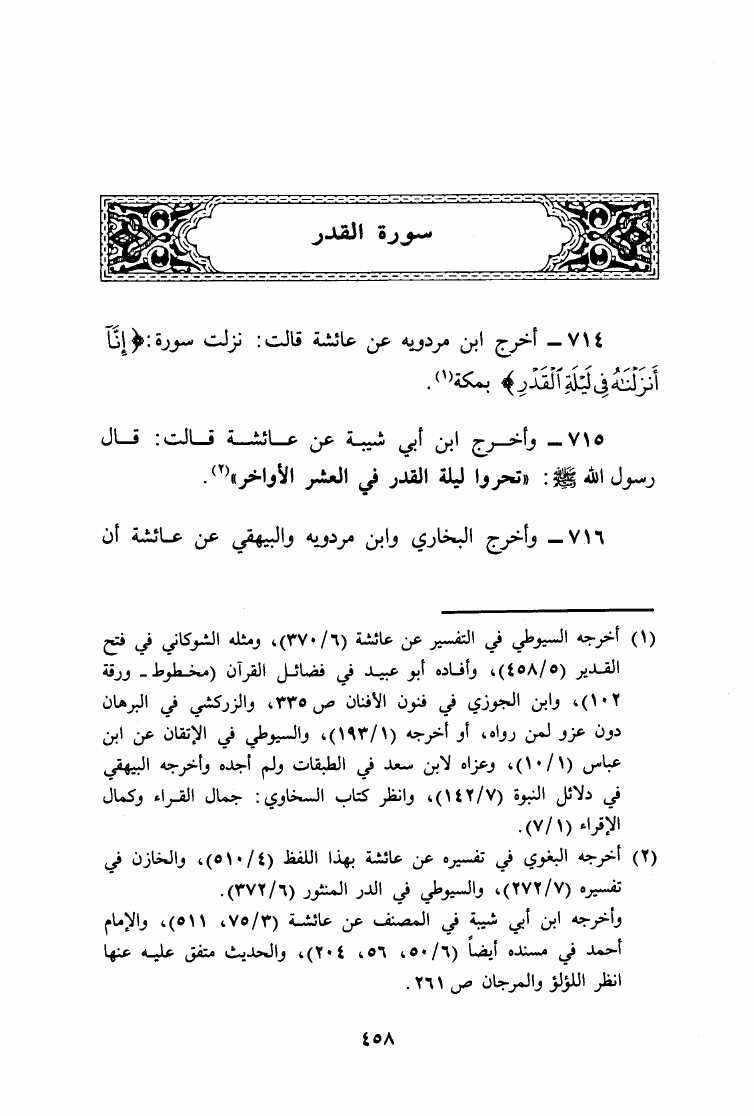 سورة القدر
٧١٤ ـ أخرج ابن مردويه عن عائشة قالت: نزلت سورة: ﴿إِنَّآ
أَنزَلْنَٰهُ فِى لَيْلَةِ ٱلْقَدْرِ﴾ بمكة(١).
٧١٥ ـ وأخـرج ابن أبي شيبـة عن عـائشـة قـالت: قـال
رسول الله ﷺ: «تحروا ليلة القدر في العشر الأواخر»(٢).
٧١٦ ـ وأخرج البخاري وابن مردويه والبيهقي عن عـائشة أن
(١) أخرجه السيوطي في التفسير عن عائشة (٣٧٠/٦)، ومثله الشوكاني في فتح
القـدير (٤٥٨/٥)، وأفـاده أبو عبيـد في فضائـل القرآن (مخـطوط ـ ورقة
١٠٢)، وابن الجوزي في فنون الأفنان ص ٣٣٥، والزركشي في البرهان
دون عزو لمن رواه، أو أخرجه (١٩٣/١)، والسيوطي في الإتقان عن ابن
عباس (١٠/١)، وعزاه لابن سعد في الطبقات ولم أجده وأخرجه البيهقي
في دلائل النبوة (١٤٢/٧)، وانظر كتاب السخاوي: جمال القـراء وكمال
الإقراء (٧/١).
(٢) أخرجه البغوي في تفسيره عن عائشة بهذا اللفظ (٥١٠/٤)، والخازن في
تفسيره (٢٧٢/٧)، والسيوطي في الدر المنثور (٣٧٢/٦).
وأخرجه ابن أبي شيبة في المصنف عن عائشـة (٧٥/٣، ٥١١)، والإمام
أحمد في مسنده أيضاً (٥٠/٦، ٥٦، ٢٠٤)، والحديث متفق عليـه عنها
انظر اللؤلؤ والمرجان ص ٢٦١.
٤٥٨